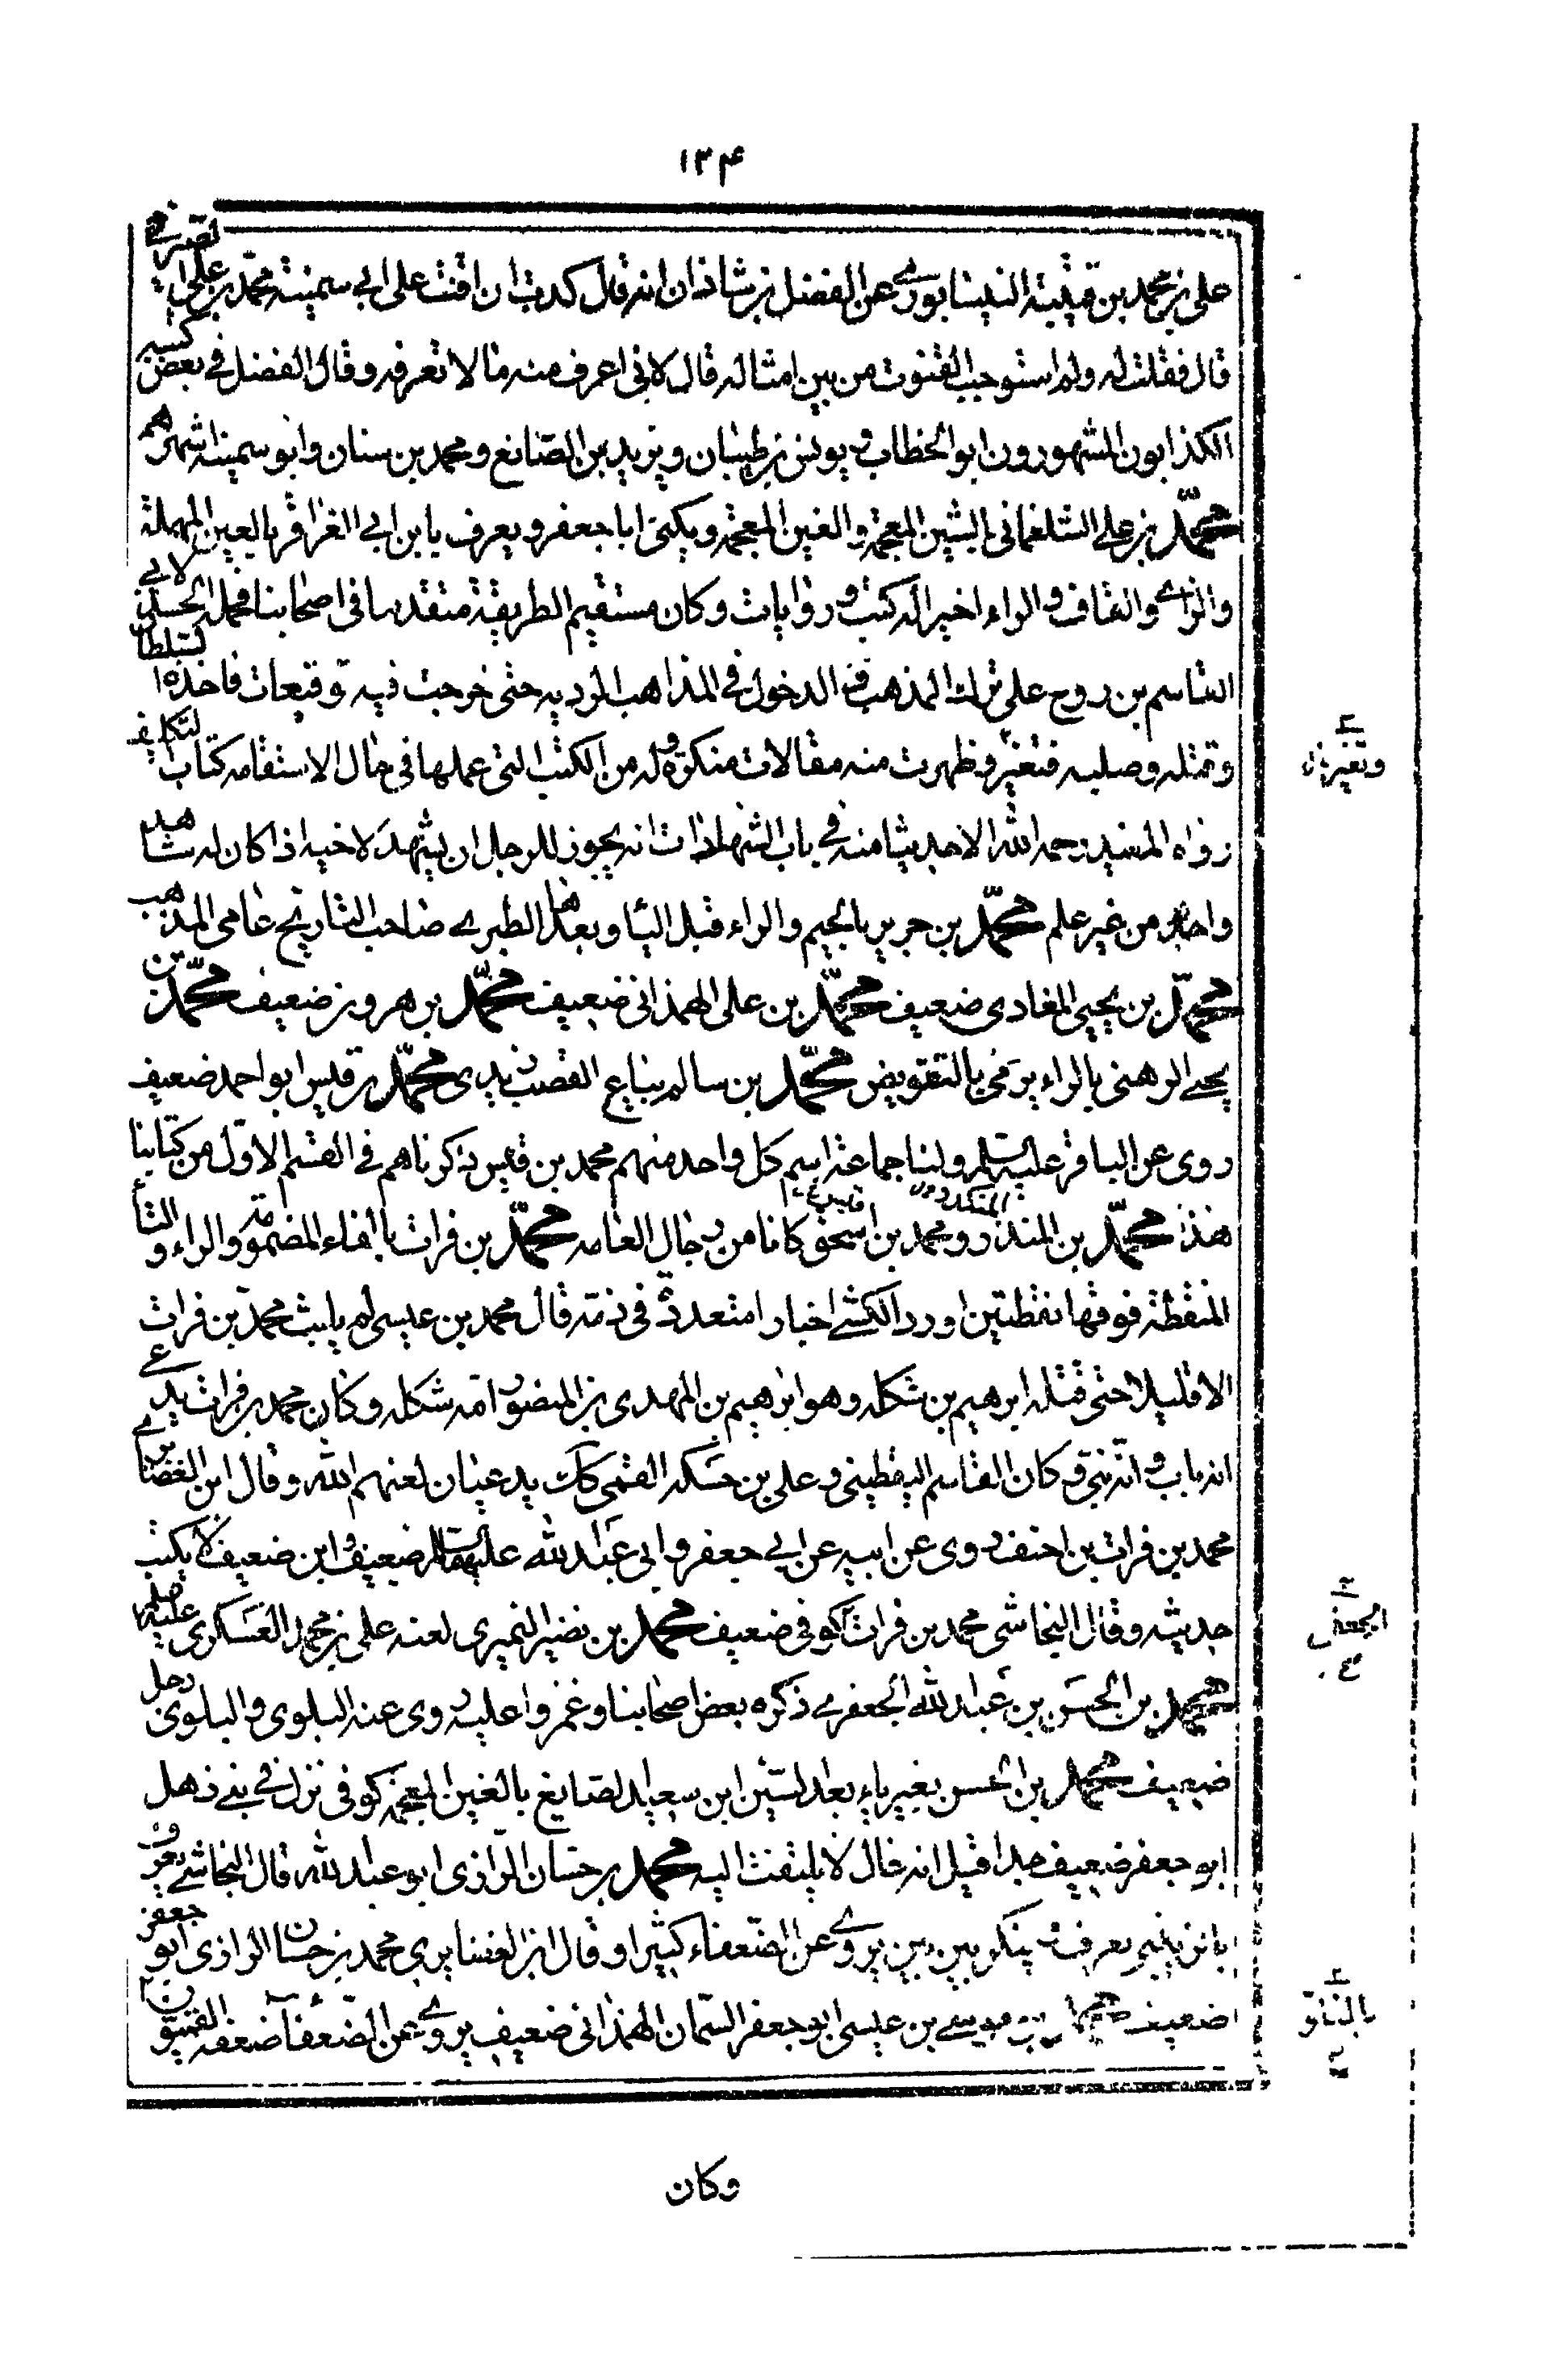 ١٣۴
على بن محمد بن قتيبة النيسابورى عن الفضل بن شاذان انه قال كدت ان اقنت على ابى سمينة محمد بن على الصيرفى
قال فقلت له ولم استوجب القنوت من بين امثاله قال لانى اعرف منه ما لا تعرفه وقال الفضل فى بعض كتبه
الكذابون المشهورون ابو الخطاب ويونس بن ظبيان ويزيد بن الصائغ ومحمد بن سنان وابو سمينة اشهرهم
محمّد بن على الشلغمانى بالشين المعجمة والغين المعجمة ويكنى ابا جعفر ويعرف بابن ابى الغراقر بالعين المهملة
والزاى والقاف والراء اخيرا له كتب وروايات وكان مستقيم الطريقة متقدما فى اصحابنا فحمله الحسد لابى
القاسم بن روح على ترك المذهب والدخول فى المذاهب الردية حتى خرجت فيه توقيعات فاخذه السلطان
وقتله وصلبه فتغير وظهرت منه مقالات منكرة وله من الكتب التى عملها فى حال الاستقامه كتاب التكليف
رواه المفيد رحمه الله الا حديثا منه فى باب الشهادات انه يجوز للرجل ان يشهد لاخيه اذا كان له شاهد
واحد من غير علم محمّد بن جرير بالجيم والراء قبل اليا وبعدها الطبرى صاحب التاريخ عامى المذهب
محمّد بن يحيى المغادى ضعيف محمّد بن على الهمذانى ضعيف محمّد بن هرون ضعيف محمّد بن
يحيى الرهنى بالراء يرمى بالتفويض محمّد بن سالم بياع القصب زيدى محمّد بن قيس ابو احمد ضعيف
روى عن الباقر عليه السلم ولنا جماعة اسم كل واحد منهم محمد بن قيس ذكرناهم فى القسم الاول من كتابنا
هذا محمّد بن المنذر ومحمد بن اسحق كانا من رجال العامه محمّد بن فرات بالفاء المضمومة والراء والتاء
المنقطة فوقها نقطتين اورد الكشى اخبارا متعددة فى ذمه قال محمد بن عيسى لم يلبث محمد بن فرات
الا قليلا حتى قتله ابرهيم بن شكله وهو ابرهيم بن المهدى بن المنصور امه شكله وكان محمد بن فرات يدعى
انه باب وانه نبى وكان القاسم اليقطينى وعلى بن حسكه القمى كك يدعيان لعنهم الله وقال ابن الغضائرى
محمد بن فرات بن احنف روى عن ابيه عن ابى جعفر وابى عبد الله عليهما السلم ضعيف ابن ضعيف لا يكتب
حديثه وقال النجاشى محمد بن فرات كوفى ضعيف محمد بن نصير النميرى لعنه على بن محمد العسكرى عليه السلم
محمد بن الحسن بن عبد الله الجعفرى ذكره بعض اصحابنا وغمز وا عليه روى عنه البلوى والبلوى رجل
ضعيف محمد بن الحسن بغير ياء بعد السين ابن سعيد الصايغ بالغين المعجمة كوفى نزل فى بنى ذهل
ابو جعفر ضعيف جدا قيل انه غال لا يلتفت اليه محمد بن حسان الرازى ابو عبد الله قال النجاشى يعرف
بالزينبى يعرف وينكر بين بين يروى عن الضعفاء كثيرا وقال ابن الغضايرى محمد بن حسان الرازى ابو جعفر
ضعيف محمد بن موسى بن عيسى ابو جعفر السمان الهمذانى ضعيف يروى عن الضعفاء ضعفه القميون
وكان